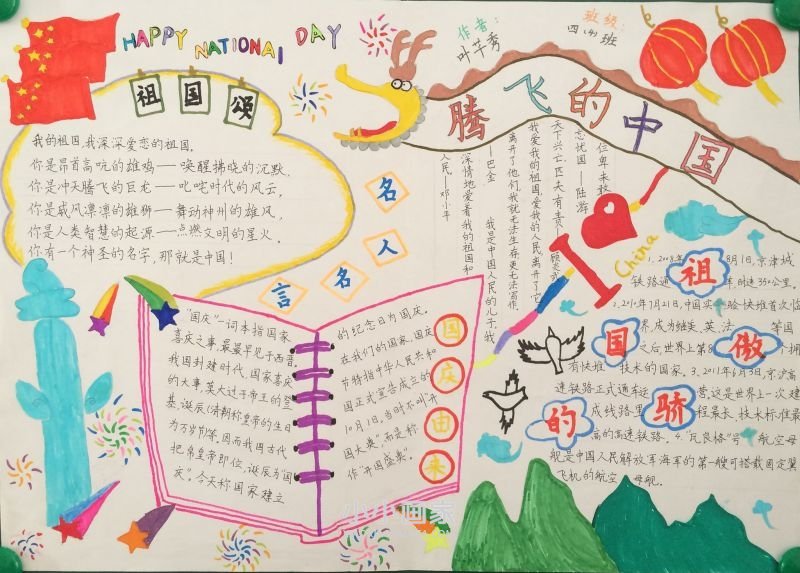 HAPPY NATIONAl DAY
作者:
叶芊秀
班级:
四.(4)班
腾飞的中国
祖国颂
我的祖国,我深深爱恋的祖国。
你是昂首高吭的雄鸡——唤醒拂晓的沉默,
你是冲天腾飞的巨龙——叱咤时代的风云,
你是威风凛凛的雄狮——舞动神州的雄风,
你是人类智慧的起源——点燃文明的星火。
你有一个神圣的名字,那就是中国!
名人名言
位卑未敢
忘忧国—陆游
天下兴亡,匹夫有责
我爱我的祖国,爱我的人民,离开了它,
离开了他们,我就无法生存,更无法写作。
—巴金
我是中国人民的儿子,我
深情地爱着我的祖国和
人民。—邓小平
I
China
国庆由来
"国庆"一词本指国家
喜庆之事,最早见于西晋。
我国封建时代、国家喜庆
的大事,莫大过于帝王的登
基、诞辰(清朝称皇帝的生日
为万岁)等。因而我国古代
把皇帝即位、诞辰为"国
庆"。今天称国家建立
的纪念日为国庆。
在我们的国家,国庆
节特指中华人民共和
国正式宣告成立的
10月1日。当时不叫"开
国大典"。而是称
作"开国盛典"。
祖国的骄傲
1. 2008年8月1日,京津城
铁路通车,时速350公里。
2.2010年7月21日,中国实验快堆首次临
界,成为继美、英、法等国
之后,世界上第8个拥
有快堆技术的国家。3.2011年6月3日,京沪高
速铁路正式通车运营,这是世界上一次建
成线路里程最长、技术标准最
高的高速铁路。4."瓦良格"号航空母
舰是中国人民解放军海军的第一艘可搭载固定翼
飞机的航空母舰。